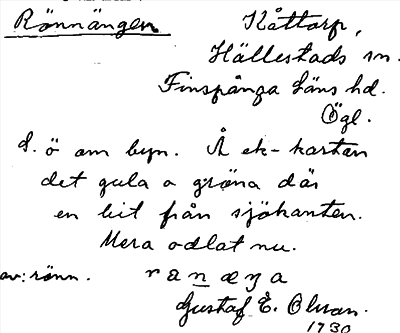 Rönnängen
Kåttorp,
Hällestads sn.
Finspånga läns hd.
Ögl.
S. ö om byn. Å ek-kartan
det gula o gröna där
en bit från sjökanten.
Mera odlat nu.
av: rönn. ranæŋa
Gustaf E. Olsson.
1930